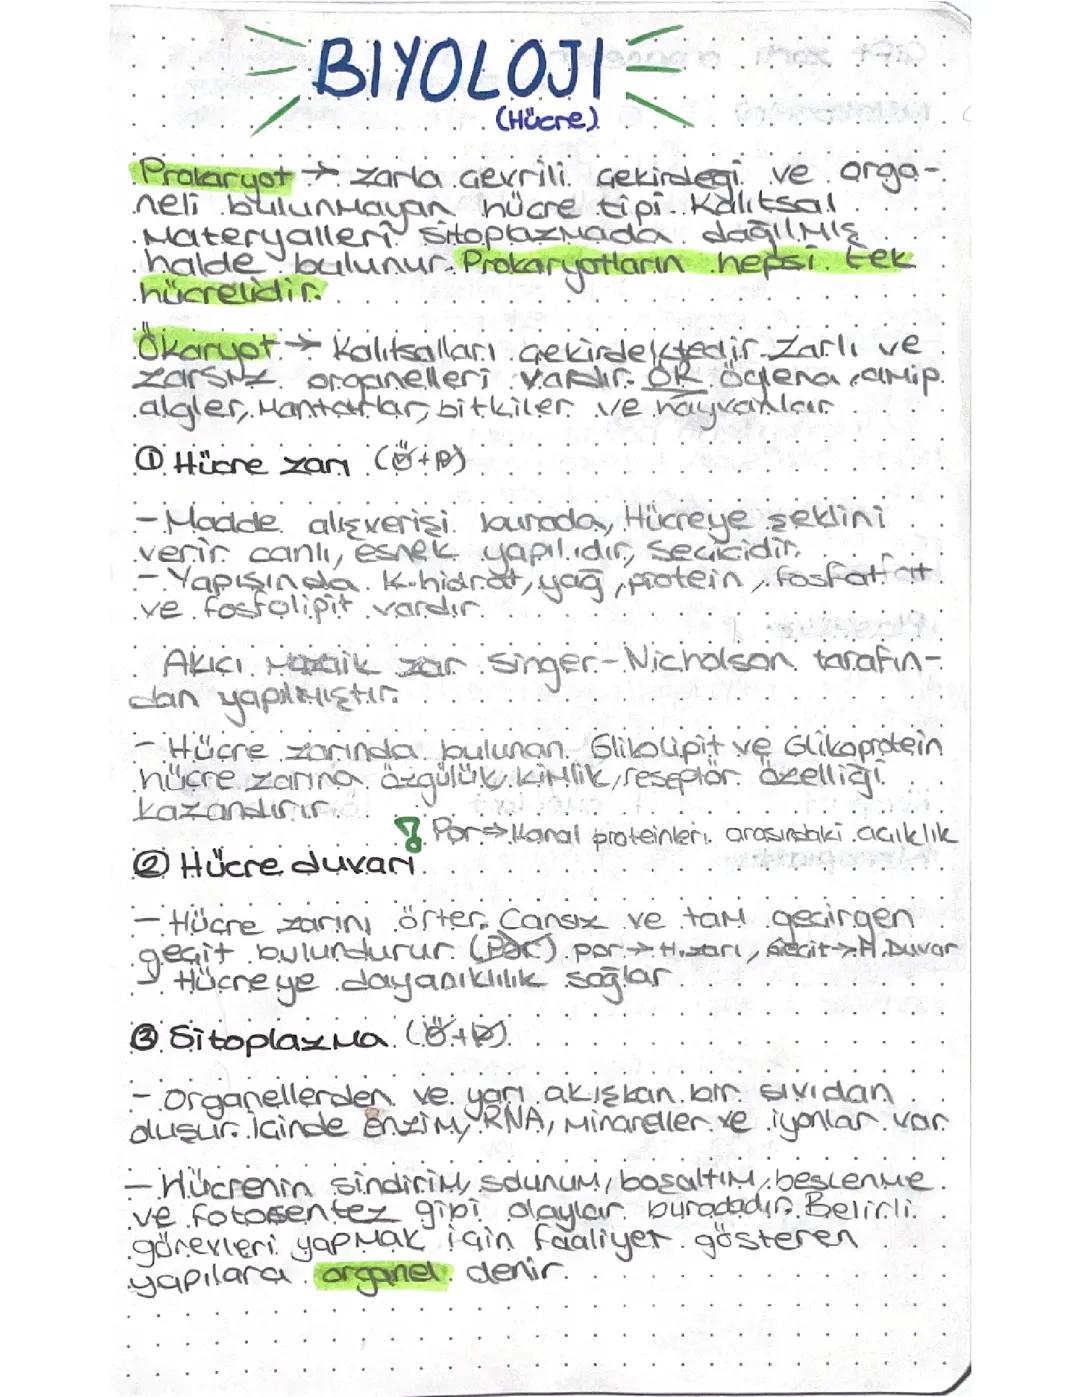 BIYOLOJI
(Hücre)
Prokaryot → zarla çevrili çekirdeği ve orga-
neli bulunmayan hücre tipi. Kalıtsal
Materyalleri sitoplazmada dağılmış
halde bulunur. Prokaryotların hepsi tek
hücrelidir.
Ökaryot → Kalıtsalları çekirdektedir. Zarlı ve
zarsız organelleri vardır. ÖR Öglena, amip.
algler, Mantarlar, bitkiler ve hayvanlar
① Hücre zarı (Ö+P)
- Madde alışverişi burada, Hücreye şeklini
verir canlı, esnek yapılıdır, seçicidir.
- Yapısında K.hidrat, yağ, protein, fosfat
ve fosfolipit vardır.
Akıcı Mozaik zar Singer-Nicholson tarafın-
dan yapılmıştır.
- Hücre zarında bulunan Glikolipit ve Glikoprotein
hücre zarına özgülük, kimlik, reseptör özelliği
kazandırır.
! Por → Kanal proteinleri arasındaki açıklık
② Hücre duvarı
- Hücre zarını örter, Cansız ve tam geçirgen
geçit bulundurur. por → H.zarı, Geçit → H.Duvar
- Hücreye dayanıklılık sağlar
③ Sitoplazma (Ö+P)
- Organellerden ve yarı akışkan bir sıvıdan
oluşur. İçinde Enzim, RNA, minareller ve iyonlar var
- Hücrenin sindirim, solunum, boşaltım, beslenme
ve fotosentez gibi olaylar buradadır. Belirli
görevleri yapmak için faaliyet gösteren
yapılara organel denir.